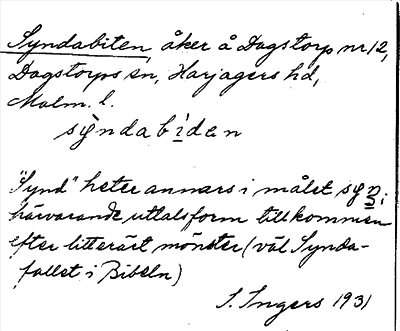 Syndabiten, åker å Dagstorp nr 12,
Dagstorps sn, Harjagers hd,
Malm. l.
sỳndabìdan
"Synd" heter annars i målet syn;
härvarande uttalsform tillkommen
efter litterärt mönster (väl Synda-
fallet i Bibeln)
S. Ingers 1931